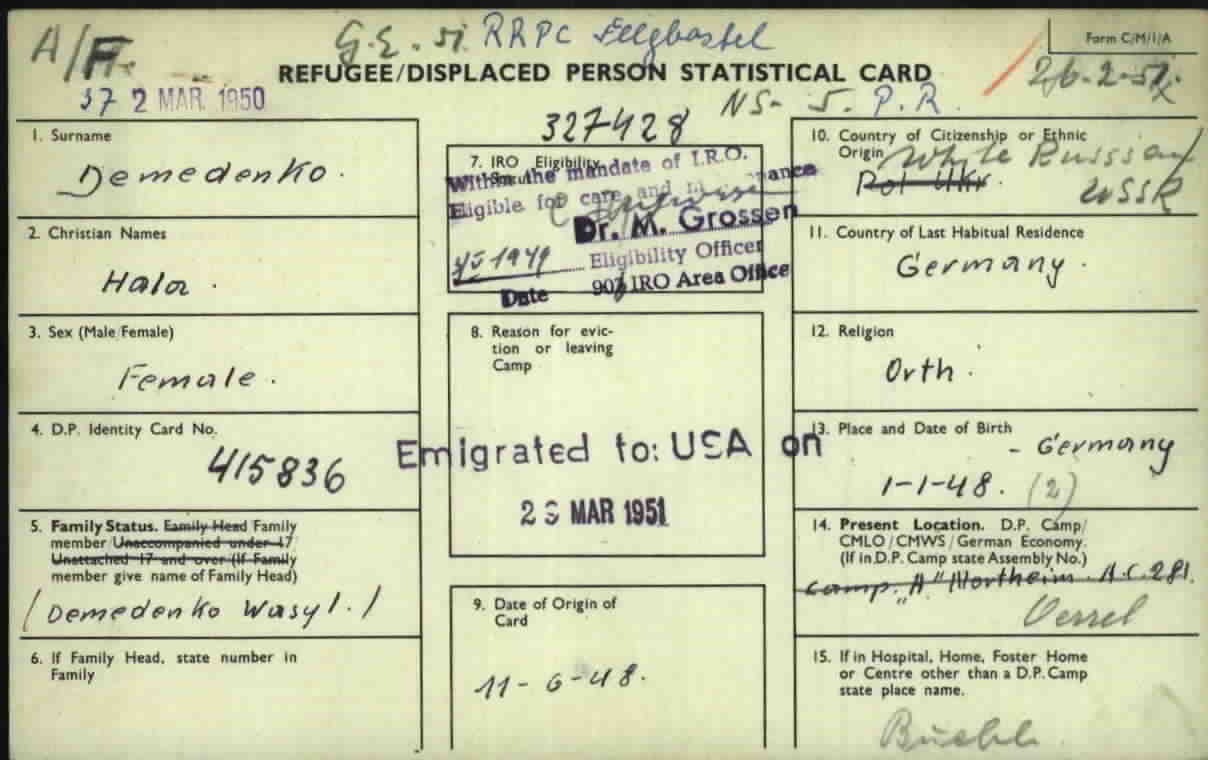 A/F. G.E. 51. RRPC Form C/M/1/A
REFUGEE/DISPLACED PERSON STATISTICAL CARD 26-2-51.
37 2 MAR. 1950 NS- 5. P.R.
327428
1. Surname
Demedenko.
2. Christian Names
Hala.
3. Sex (Male/Female)
Female.
4. D.P. Identity Card No.
415836
5. Family Status. Family Head Family
member Unaccompanied under 17
Unattached 17 and over (If Family
member give name of Family Head)
/Demedenko Wasyl./
6. If Family Head, state number in
Family
7. IRO Eligibility
Within the mandate of I.R.O.
Eligible for care and
Dr. M. Grossen
1949 Eligibility Officer
Date IRO Area Office
8. Reason for evic-
tion or leaving
Camp
Emigrated to: USA on
MAR 1951
9. Date of Origin of
Card
11-6-48.
10. Country of Citizenship or Ethnic
Origin White Russian
Pol-Ukr. USSR
11. Country of Last Habitual Residence
Germany.
12. Religion
Orth.
13. Place and Date of Birth
- Germany
1-1-48. (2)
14. Present Location. D.P. Camp/
CMLO/CMWS/German Economy.
(If in D.P. Camp state Assembly No.)
camp. "A" Northeim. A.C. 281.
15. If in Hospital, Home, Foster Home
or Centre other than a D.P. Camp
state place name.